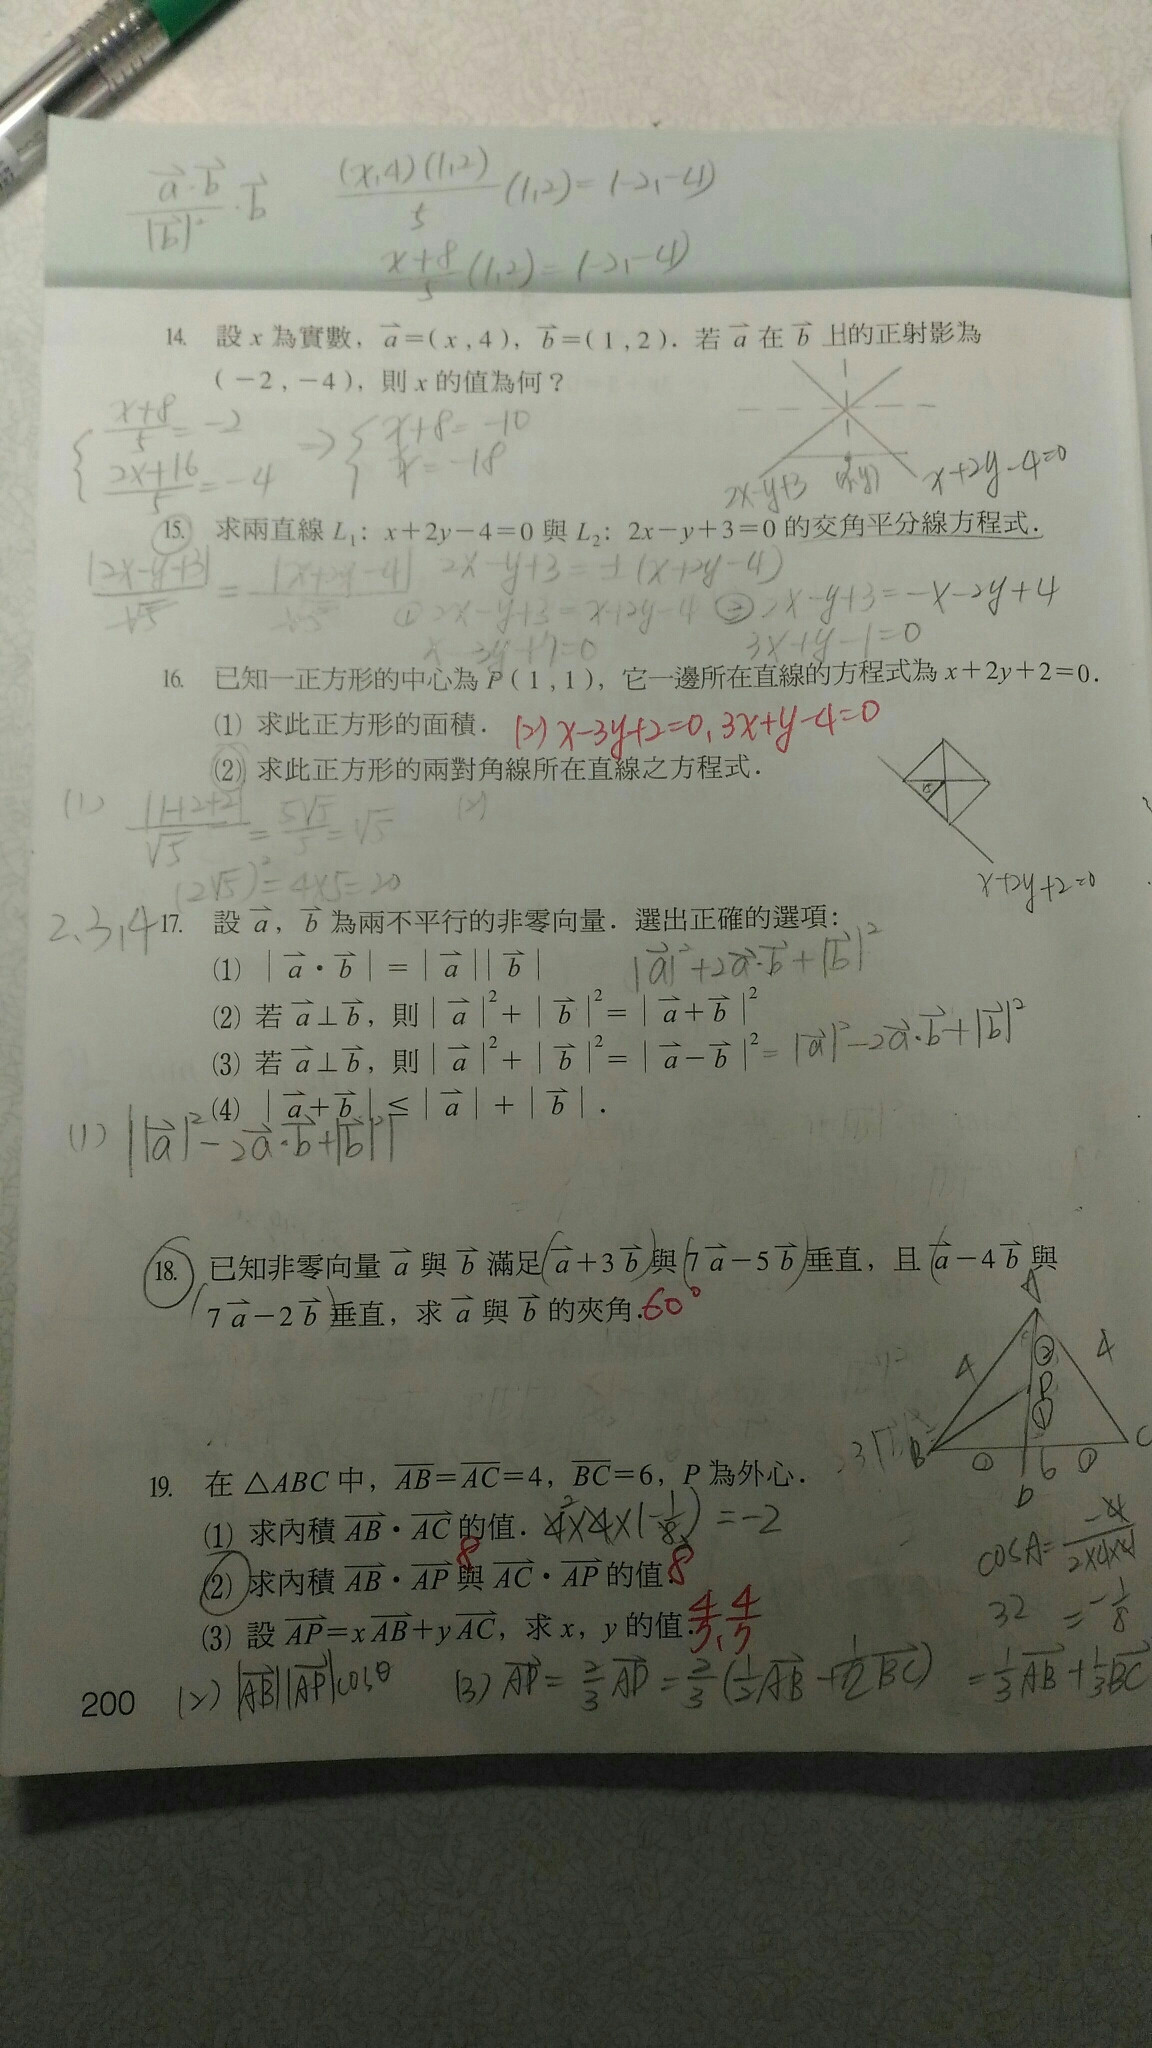 a⃗·b⃗/|b⃗|²·b⃗ (x,4)(1,2)/5 (1,2)=(-2,-4)
x+8/5 (1,2)=(-2,-4)
14. 設 x 為實數，a⃗=(x,4)，b⃗=(1,2)．若 a⃗ 在 b⃗ 上的正射影為
(-2,-4)，則 x 的值為何？
{ x+8/5=-2 ⇒ { x+8=-10
2x+16/5=-4 x=-18
2x-y+3 (x,y) x+2y-4=0
15. 求兩直線 L₁：x+2y-4=0 與 L₂：2x-y+3=0 的交角平分線方程式．
|2x-y+3|/√5 = |x+2y-4|/√5 2x-y+3=±(x+2y-4)
① 2x-y+3=x+2y-4 ② 2x-y+3=-x-2y+4
x-3y+7=0 3x+y-1=0
16. 已知一正方形的中心為 P(1,1)，它一邊所在直線的方程式為 x+2y+2=0．
(1) 求此正方形的面積．(2) x-3y+2=0, 3x+y-4=0
(2) 求此正方形的兩對角線所在直線之方程式．
(1) |1+2+2|/√5 = 5√5/5=√5 (2)
(2√5)²=4×5=20
x+2y+2=0
2,3,4
17. 設 a⃗，b⃗ 為兩不平行的非零向量．選出正確的選項：
(1) |a⃗·b⃗|=|a⃗||b⃗| |a⃗|²+2a⃗·b⃗+|b⃗|²
(2) 若 a⃗⊥b⃗，則 |a⃗|²+|b⃗|²=|a⃗+b⃗|²
(3) 若 a⃗⊥b⃗，則 |a⃗|²+|b⃗|²=|a⃗-b⃗|² =|a⃗|²-2a⃗·b⃗+|b⃗|²
(4) |a⃗+b⃗|≤|a⃗|+|b⃗|．
(1) ||a⃗|²-2a⃗·b⃗+|b⃗|²|
18. 已知非零向量 a⃗ 與 b⃗ 滿足(a⃗+3b⃗)與(7a⃗-5b⃗)垂直，且(a⃗-4b⃗與
(7a⃗-2b⃗)垂直，求 a⃗ 與 b⃗ 的夾角．60°
A
4 ② 4
P
①
B ① 6 ① C
D
19. 在 △ABC 中，AB=AC=4，BC=6，P 為外心．
(1) 求內積 AB⃗·AC⃗ 的值．4×4×(-1/8)=-2
cosA=-4/2×4×4
(2) 求內積 AB⃗·AP⃗ 與 AC⃗·AP⃗ 的值．8 8
32 =-1/8
(3) 設 AP⃗=xAB⃗+yAC⃗，求 x，y 的值．
(2) |AB⃗||AP⃗|cosθ (3) AP⃗=2/3 AD⃗=2/3(1/2 AB⃗+1/2 BC⃗) =1/3 AB⃗+1/3 BC⃗
200